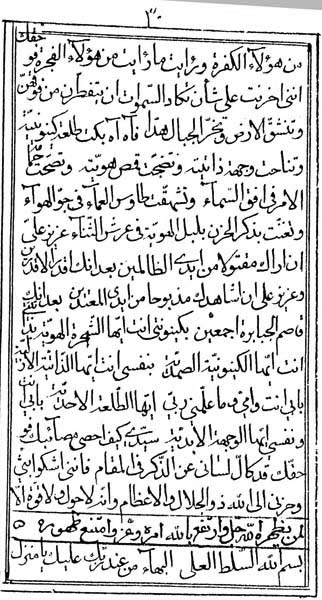 ٣٠
من هؤلاء الكفرة ورايت ما رايت من هؤلاء الفجرة فو حقك
اننى احزنت على شأن تكاد السموات ان يتفطرن من فوقهن
وتنشق الارض وتخر الجبال هدا فآه آه بكت طلعة كينونية
وتناحت وجهة ذاتية وتضجت قمص هوية وتصحت
الامر فى افق السماء وتشهقت طاوس العماء فى جو الهواء
وتغنت بذكر الحزن بلبل الهوية فى عرش الثناء عزيز على
ان اراك مقتولا من ايدى الظالمين بعد انك اقدر الاقدرين
وعزيز على ان اشاهدك مذبوحا من ايدى المعتدين بعد انك
قاصم الجبابرة اجمعين بكينونتى انت ايها الشجرة الهوية
انت ايها الكينونية الصمدية بنفسى انت ايها الذاتية الازلية
بابى انت وامى وما علمنى ربى ايها الطلعة الاحدية بابى انت
ونفسى ايها الوجهة الابدية سيدى كيف احصى مصائبك فو
حقك قد كال لسانى عن الذكر فى المقام فاننى اشكو بثى
وحزنى الى الله ذو الجلال والاعظام وانه لا حول ولا قوة الا
لمن يظهره الله جل وارتفع بالله امره وعز وامتنع ظهوره
بسم الله السلط العلى البهاء من عند ربك عليك يا منزل